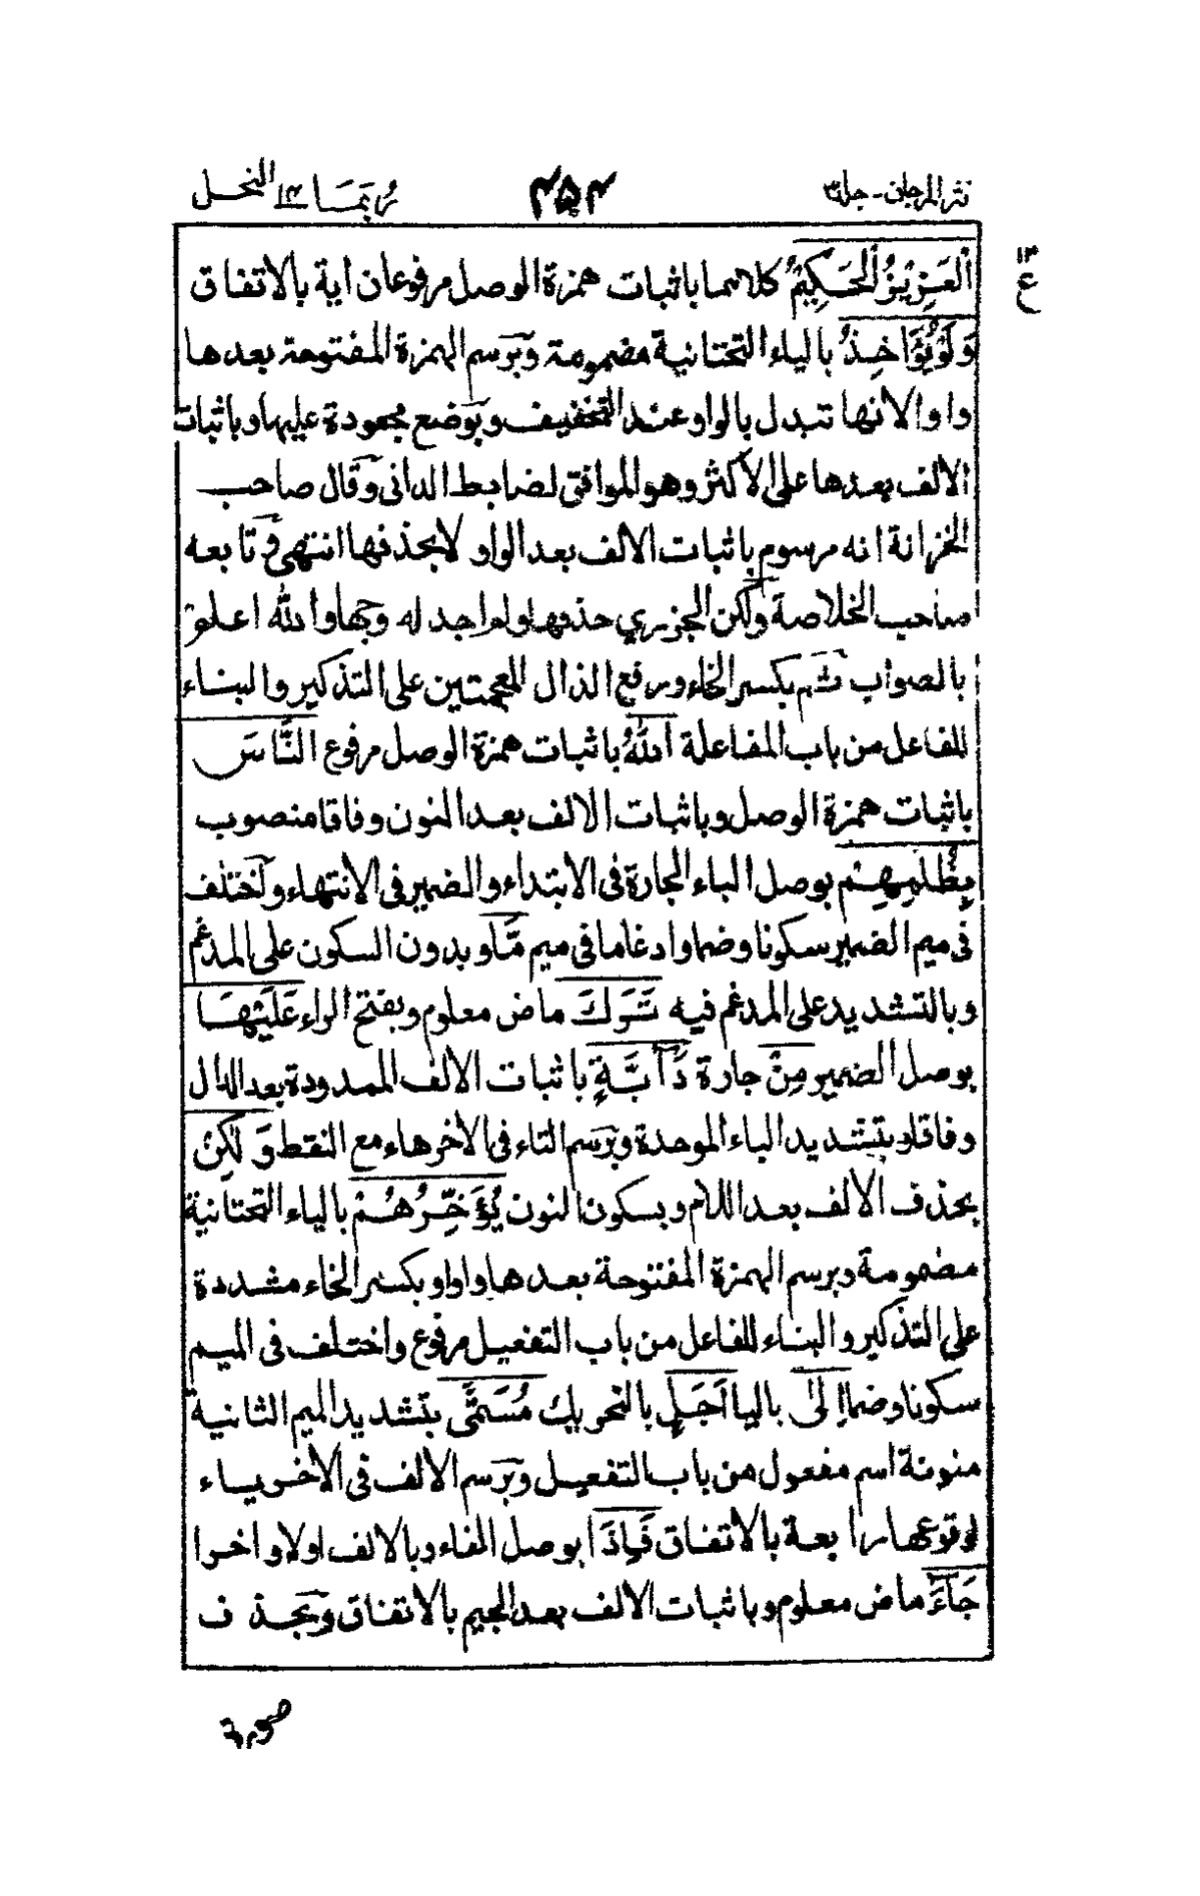 نثر المرجان - جلد٣ ٤٥٤ رُبَمَا ١٤ النحل
١٣
ع
اَلْعَزِيْزُ الْحَكِيْمُ كلاهما باثبات همزة الوصل مرفوعان اٰية بالاتفاق
وَلَوْ يُؤَاخِذُ بالياء التحتانية مضمومة وبرسم الهمزة المفتوحة بعدها
واوا لانها تبدل بالواو عند التخفيف وبوضع مجعودة عليها وباثبات
الالف بعدها على الاكثر وهو الموافق لضابط الدانى وقال صاحب
الخزانة انه مرسوم باثبات الالف بعد الواو لا بحذفها انتهى وتابعه
صاحب الخلاصة ولكن الجزري حذفها ولم اجد له وجها والله اعلم
بالصواب ثم بكسر الخاء ورفع الذال المعجمتين على التذكير والبناء
للفاعل من باب المفاعلة اَللّٰهُ باثبات همزة الوصل مرفوع النَّاسَ
باثبات همزة الوصل وباثبات الالف بعد النون وفاقا منصوب
بِظُلْمِهِمْ بوصل الباء الجارة فى الابتداء والضمير فى الانتهاء واختلف
فى ميم الضمير سكونا وضما وادغاما فى ميم مَّا وبدون السكون على المدغم
وبالتشديد على المدغم فيه تَرَكَ ماض معلوم وبفتح الراء عَلَيْهَا
بوصل الضمير مِنْ جارة دَآبَّةٍ باثبات الالف الممدودة بعد الدال
وفاقا وبتشديد الباء الموحدة وبرسم التاء فى الاخر هاء مع النقط وَلٰكِنْ
بحذف الالف بعد اللام وبسكون النون يُؤَخِّرُهُمْ بالياء التحتانية
مضمومة وبرسم الهمزة المفتوحة بعدها واوا وبكسر الخاء مشددة
على التذكير والبناء للفاعل من باب التفعيل مرفوع واختلف فى الميم
سكونا وضما اِلٰى باليا اَجَلٍ بالتحريك مُسَمًّى بتشديد الميم الثانية
منونة اسم مفعول من باب التفعيل وبرسم الالف فى الاخر ياء
لوقوعها رابعة بالاتفاق فَاِذَا بوصل الفاء وبالالف اولا واخرا
جَآءَ ماض معلوم وباثبات الالف بعد الجيم بالاتفاق وبحذف